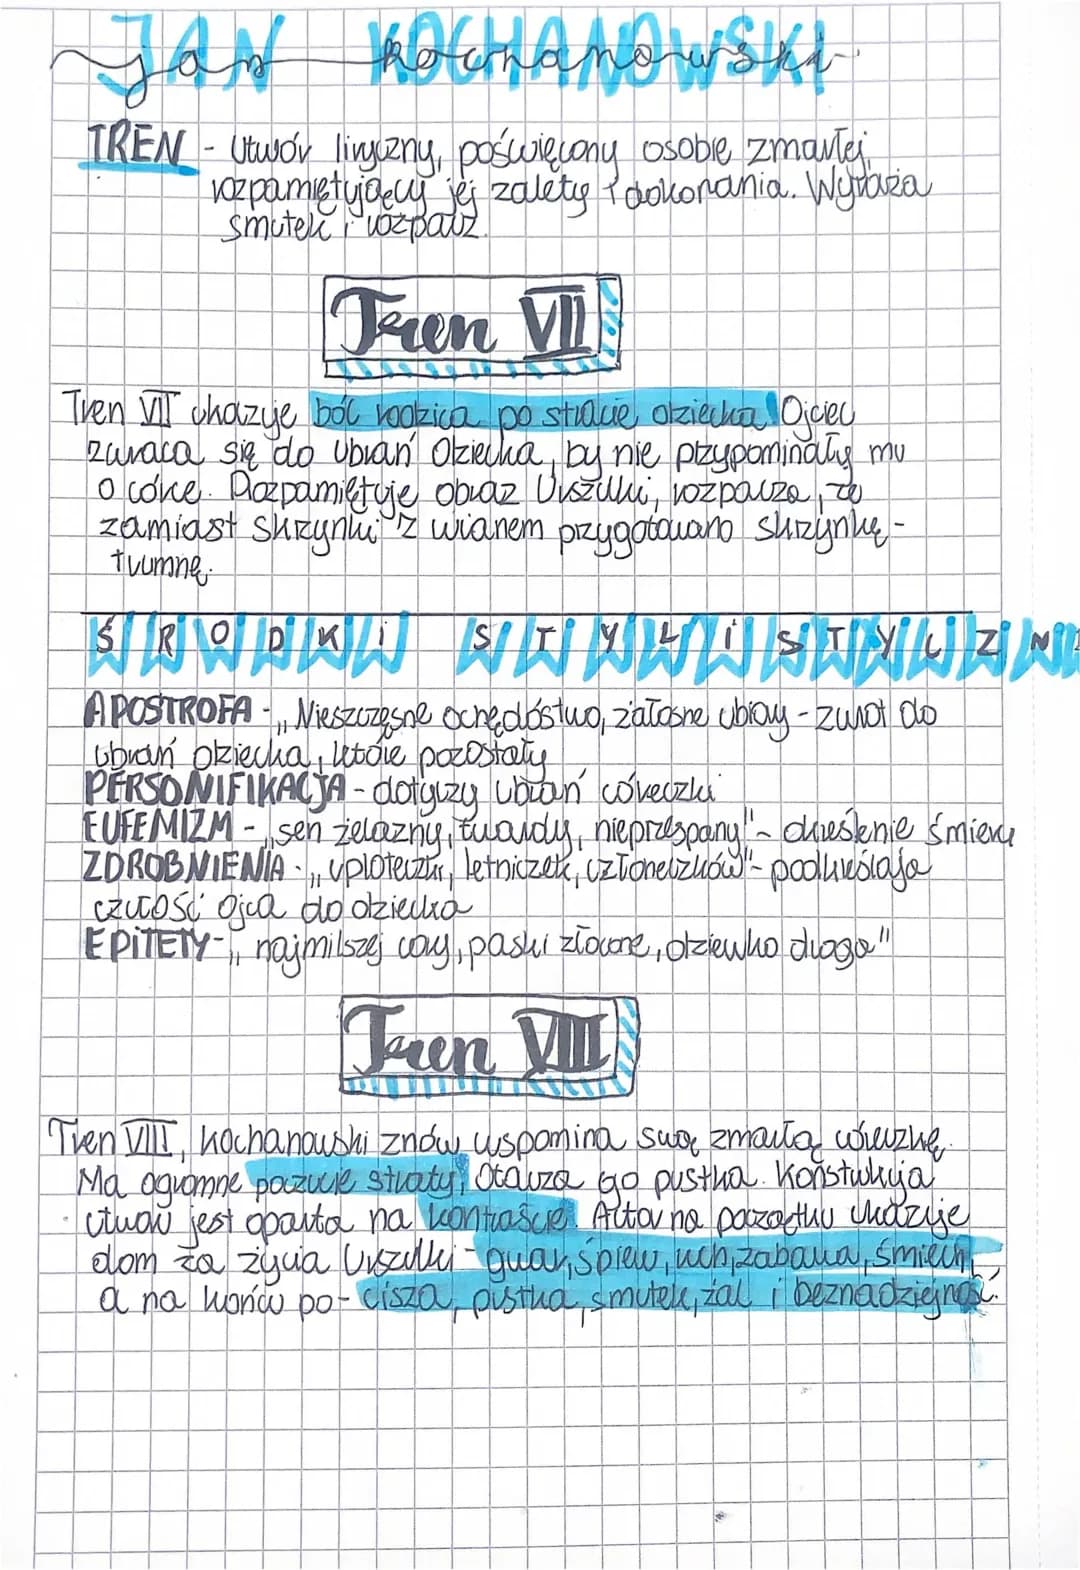 JAN KOCHANOWSKI
jan kochanowski
TREN - Utwór liryczny, poświęcony osobie zmarłej,
rozpamiętujący jej zalety i dokonania. Wyraża
smutek i rozpacz.
Tren VII
Tren VII ukazuje ból rodzica po stracie dziecka. Ojciec
zwraca się do ubrań dziecka, by nie przypominały mu
o córce. Rozpamiętuje obraz Urszulki, rozpacza, że
zamiast skrzynki z wianem przygotowano skrzynkę -
trumnę.
ŚRODKI STYLISTYCZNE
APOSTROFA - „Nieszczęsne ochędóstwo, żałosne ubiory - zwrot do
ubrań dziecka, które pozostały
PERSONIFIKACJA - dotyczy ubrań córeczki
EUFEMIZM - „sen żelazny, twardy, nieprzespany" - określenie śmierci
ZDROBNIENIA - „uploteczki, letniczek, członeczków" - podkreślają
czułość ojca do dziecka
EPITETY - „najmilszej cory, paski złocone, dziewko droga"
Tren VIII
Tren VIII, Kochanowski znów wspomina swą zmarłą córeczkę.
Ma ogromne poczucie straty, otacza go pustka. Konstrukcja
utworu jest oparta na kontraście. Autor na początku ukazuje
dom za życia Urszulki - gwar, śpiew, ruch, zabawa, śmiech,
a na końcu po - cisza, pustka, smutek, żal i beznadziejność.